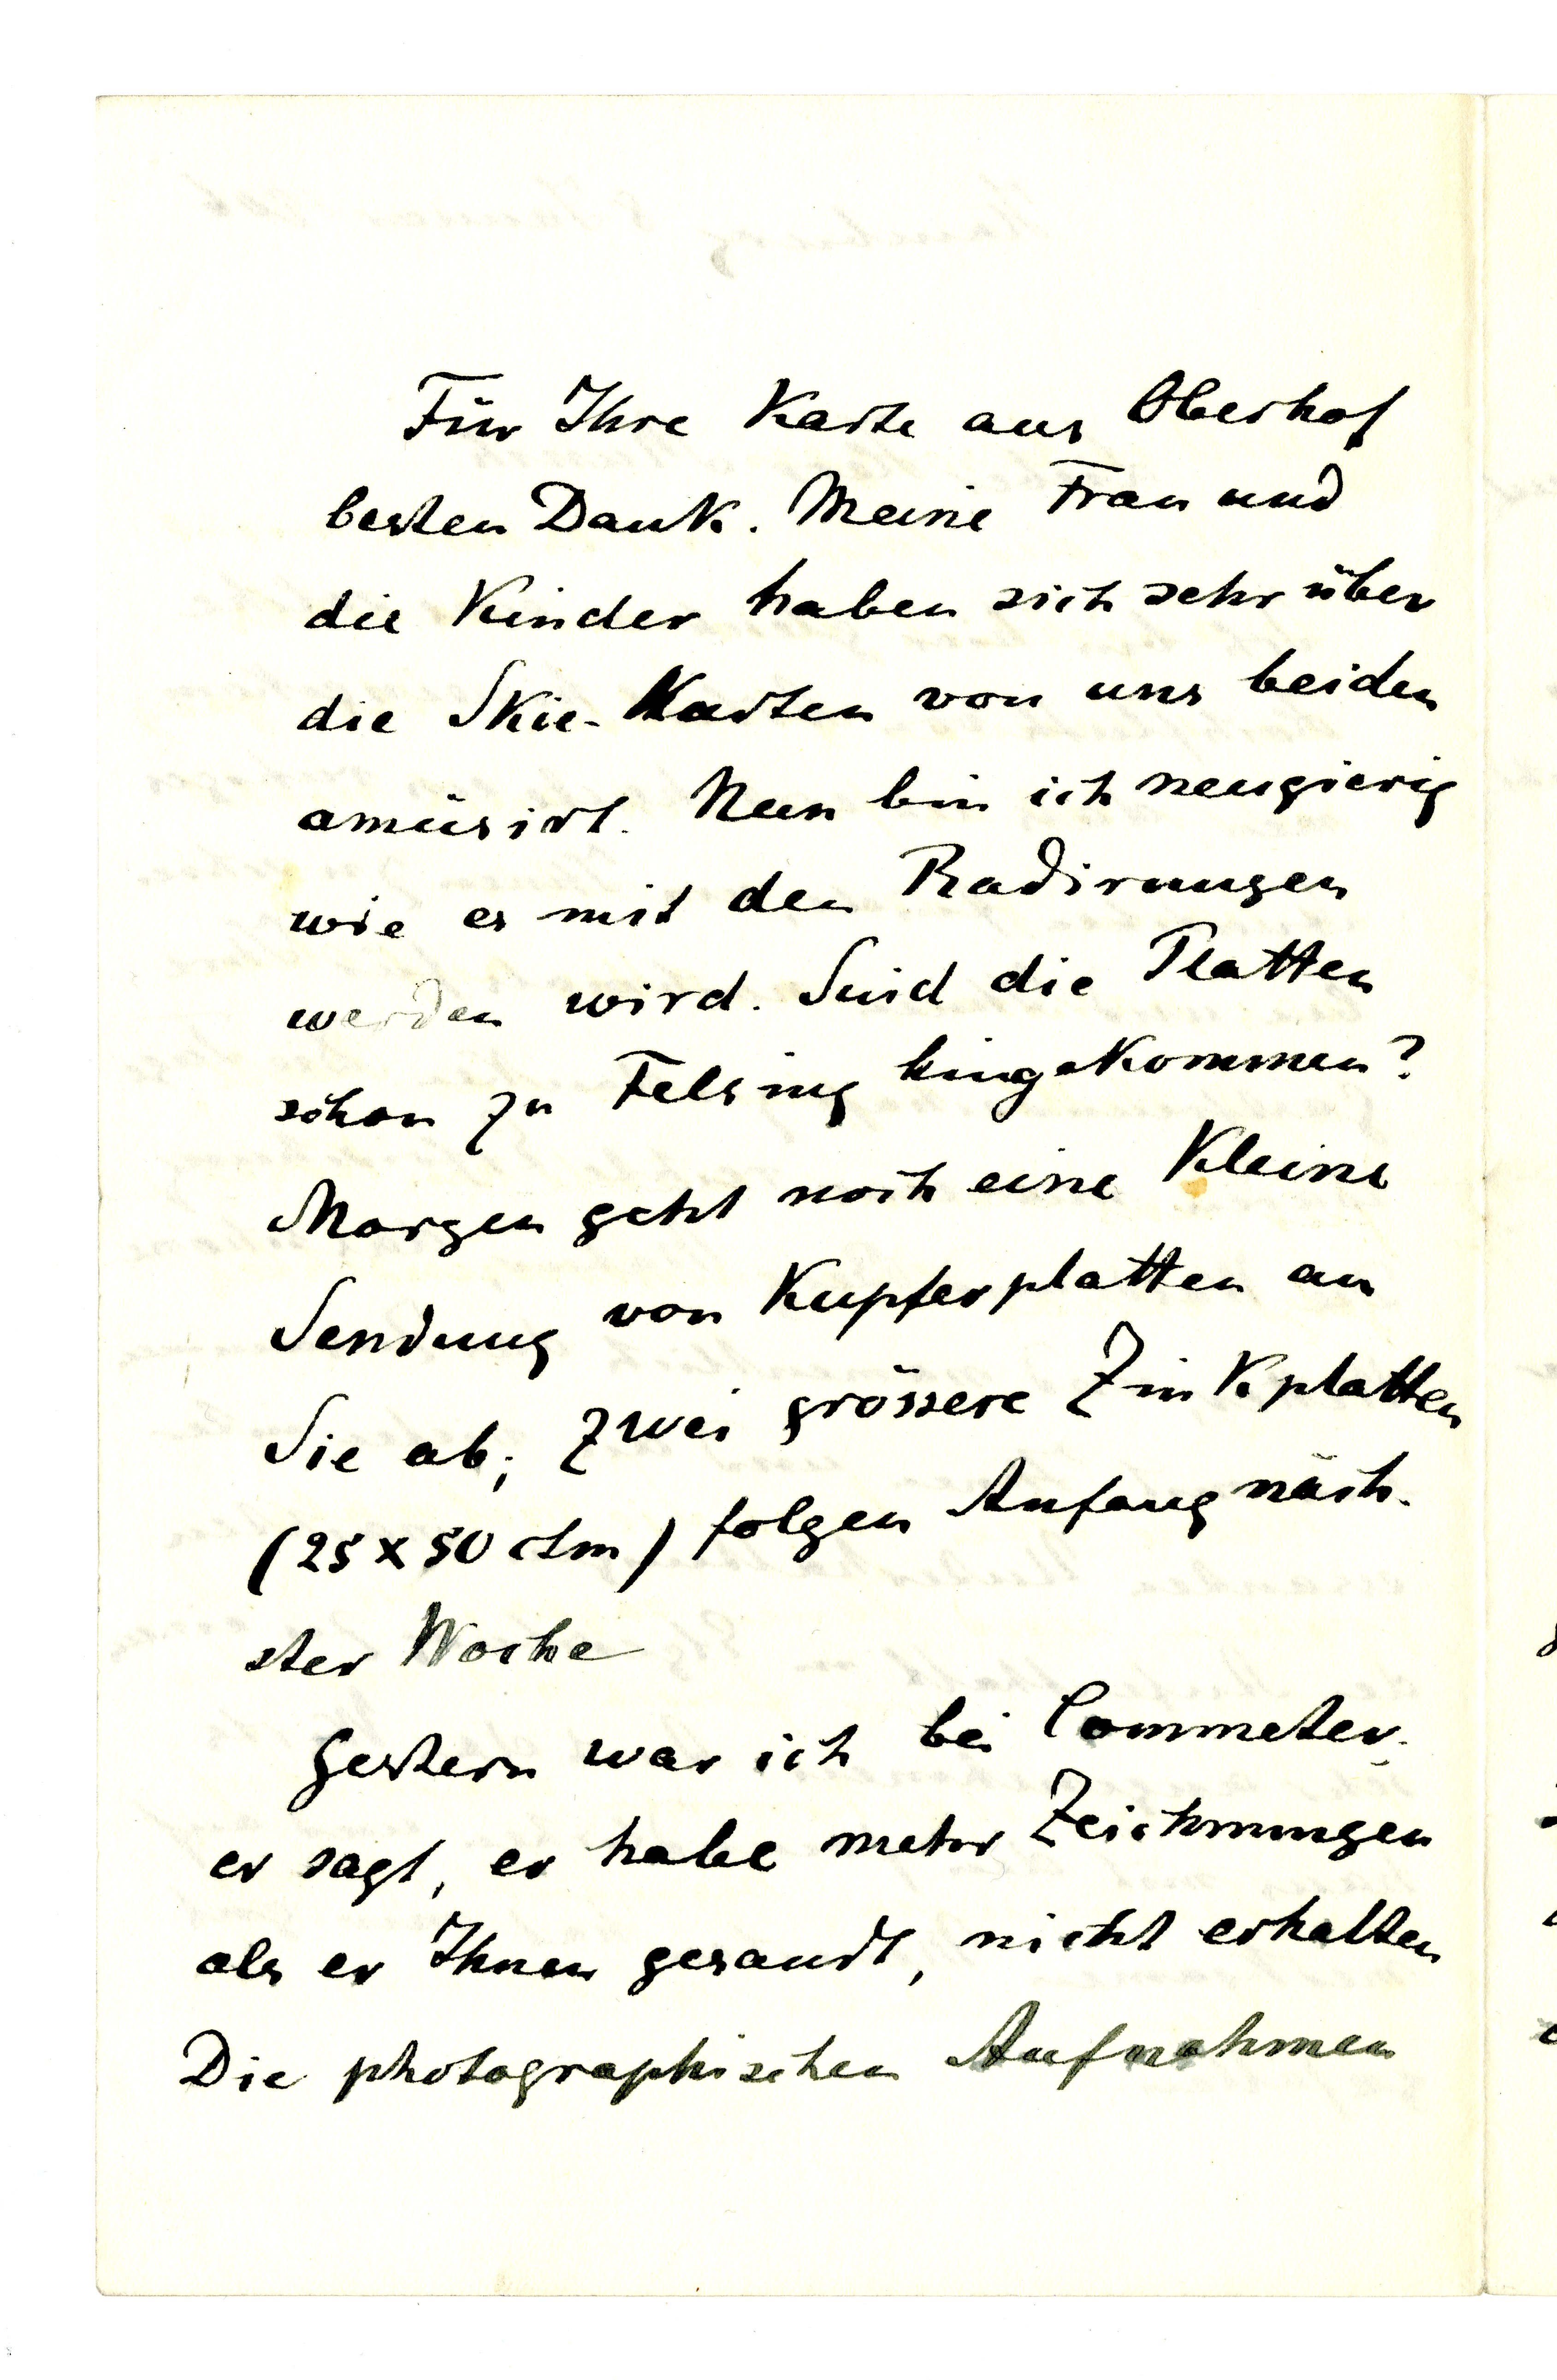 Für Ihre Karte aus Oberhof
besten Dank. Meine Frau und
die Kinder haben sich sehr über
die Skie-Karten von uns beiden
amüsirt. Nun bin ich neugierig
wie es mit den Radirungen
werden wird. Sind die Platten
schon zu Felsing hingekommen?
Morgen geht noch eine kleine
Sendung von Kupferplatten an
Sie ab; zwei grössere Zinkplatten
(25 x 50 ctm) folgen Anfang näch-
ster Woche
Gestern war ich bei Commeter;
er sagt, er habe mehr Zeichnungen
als er Ihnen gesandt, nicht erhalten
Die photographischen Aufnahmen